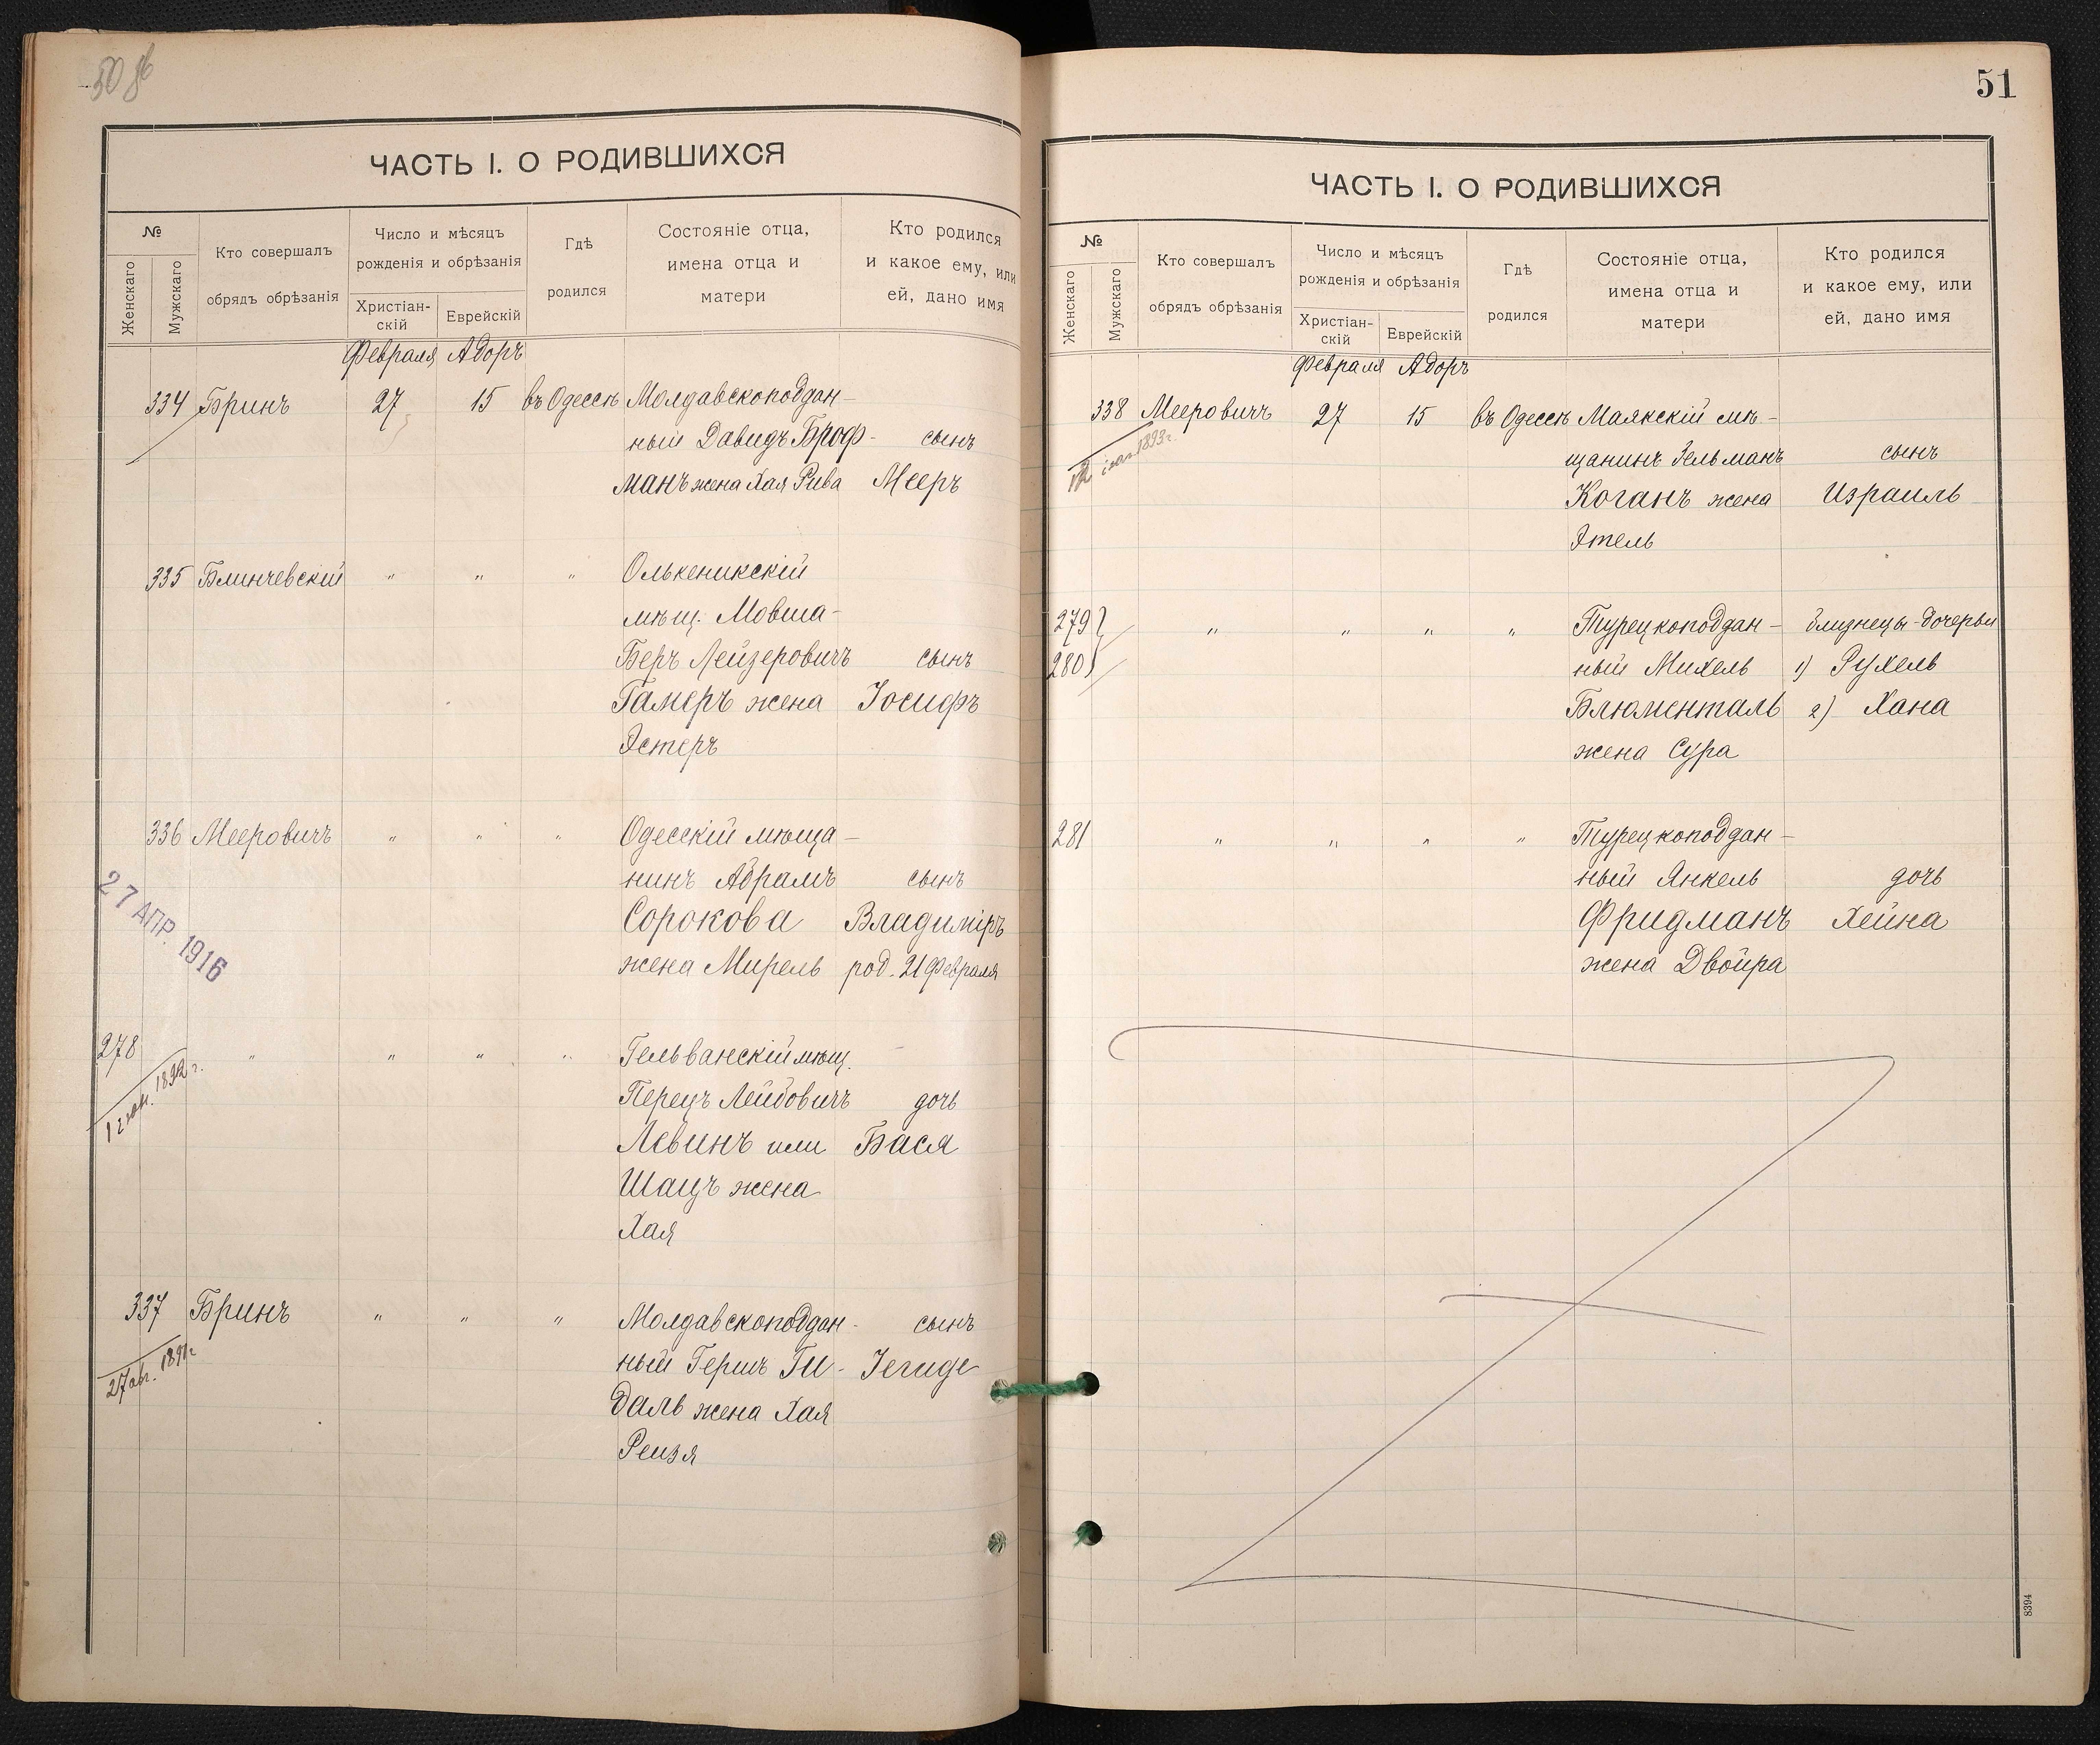 50 об
ЧАСТЬ I. О РОДИВШИХСЯ
№
Женскаго
Мужскаго
Кто совершалъ
обрядъ обрѣзанія
Число и мѣсяцъ
рожденія и обрѣзанія
Христіан-
скій
Еврейскій
Гдѣ
родился
Состояніе отца,
имена отца и
матери
Кто родился
и какое ему, или
ей, дано имя
Февраля Адоръ
334 Бринъ 27 15 въ Одессѣ Молдавскоподдан-
ный Давидъ Броф- сынъ
манъ жена Хая Рива Мееръ
335 Блинчевскій " " " Олькеникскій
мѣщ. Мовша-
Беръ Лейзеровичъ сынъ
Гамеръ жена Іосифъ
Эстеръ
336 Мееровичъ " " " Одесскій мѣща-
нинъ Абрамъ сынъ
Сорокова Владиміръ
жена Мирель род. 21 Февраля
27 АПР. 1916
278 " " " " Гельванскій мѣщ.
1892 г.
Перецъ Лейбовичъ дочь
Левинъ или Бася
Шацъ жена
Хая
337 Бринъ " " " Молдавскоподдан- сынъ
27 авг. 1891 г.
ный Гершъ Ги- Іегиде
даль жена Хая
Рейзя
51
ЧАСТЬ I. О РОДИВШИХСЯ
№
Женскаго
Мужскаго
Кто совершалъ
обрядъ обрѣзанія
Число и мѣсяцъ
рожденія и обрѣзанія
Христіан-
скій
Еврейскій
Гдѣ
родился
Состояніе отца,
имена отца и
матери
Кто родился
и какое ему, или
ей, дано имя
Февраля Адоръ
338 Мееровичъ 27 15 въ Одессѣ Маякскій мѣ-
1893 г.
щанинъ Зельманъ сынъ
Коганъ жена Израиль
Этель
279 " " " " Турецкоподдан- близнецы-дочерьи
280 ный Михель 1) Рухель
Блюменталь 2) Хана
жена Сура
281 " " " " Турецкоподдан-
ный Янкель дочь
Фридманъ Хейна
жена Двойра
8394